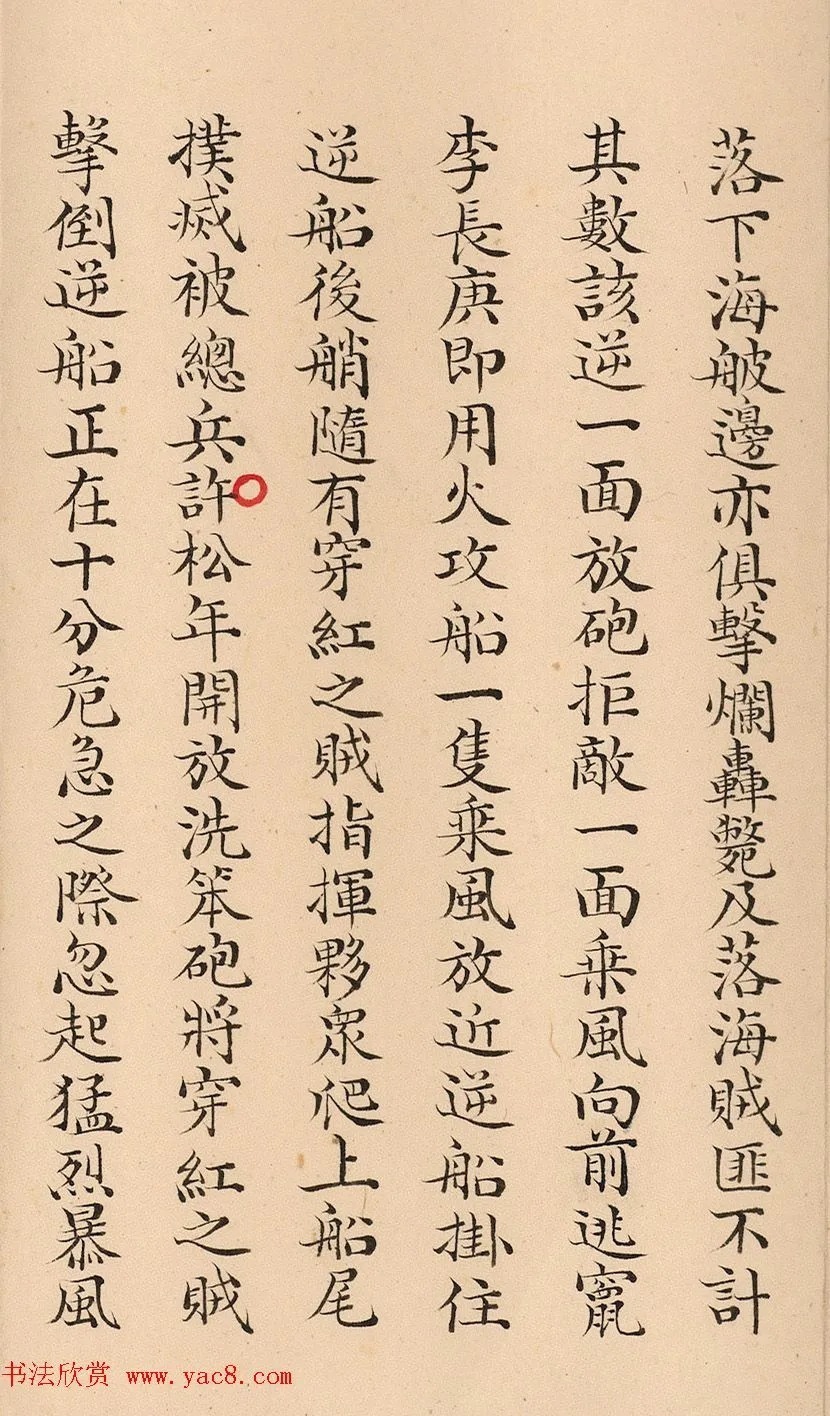 落下海舨邊亦俱擊爛轟斃及落海賊匪不計
其數該逆一面放砲拒敵一面乗風向前逃竄
李長庚即用火攻船一隻乗風放近逆船掛住
逆船後艄隨有穿紅之賊指揮夥衆爬上船尾
撲滅被總兵許松年開放洗笨砲將穿紅之賊
擊倒逆船正在十分危急之際忽起猛烈暴風
书法欣赏 www.yac8.com